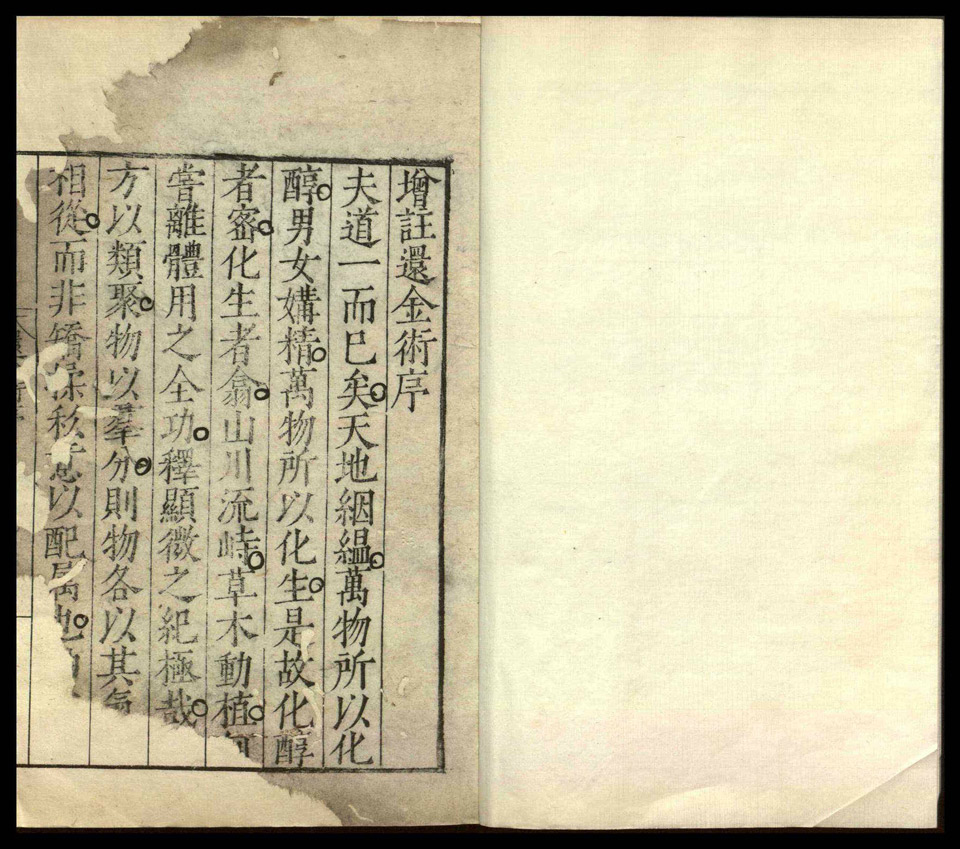 增註還金術序
夫道一而巳矣天地絪縕萬物所以化
醇男女媾精萬物所以化生是故化醇
者宻化生者翕山川流峙草木動植
甞離體用之全功釋顯微之紀極哉
方以類聚物以羣分則物各以其氣
相從而非矯深私意以配屬也